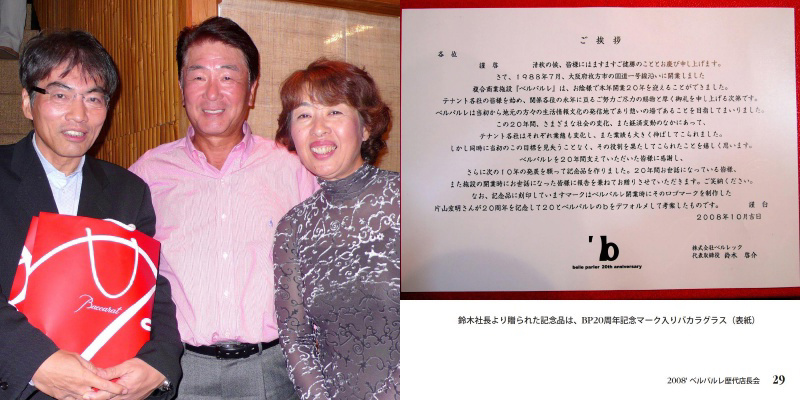 Baccarat
ご 挨 拶
各 位
謹 啓　清秋の候、皆様にはますますご健勝のこととお慶び申し上げます。
さて、1988年7月、大阪府枚方市の国道一号線沿いに開業しました
複合商業施設『ベルパルレ』は、お陰様で本年開業20年を迎えることができました。
テナント各社の皆様を始め、関係各位の永年に亘るご努力ご尽力の賜物と厚く御礼を申し上げる次第です。
ベルパルレは当初から地元の方々の生活情報文化の発信地であり憩いの場であることを目指してまいりました。
この20年間、さまざまな社会の変化、また経済変動のなかにあって、
テナント各社はそれぞれ業態も変化し、また業績も大きく伸ばしてこられました。
しかし同時に当初のこの目標を見失うことなく、その役割を果たしてこられたことを嬉しく思います。
ベルパルレを20年間支えていただいた皆様に感謝し、
さらに次の10年の発展を願って記念品を作りました。20年間お世話になっている皆様、
また施設の開業時にお世話になった皆様に報告を兼ねてお贈りさせていただきます。ご笑納ください。
なお、記念品に刻印していますマークはベルパルレ開業時にそのロゴマークを制作した
片山宏明さんが20周年を記念して20とベルパルレのbをデフォルメして考案したものです。　謹 白
2008年10月吉日
'b
belle parler 20th anniversary
株式会社ベルレック
代表取締役 鈴木 啓介
鈴木社長より贈られた記念品は、BP20周年記念マーク入りバカラグラス（表紙）
2008' ベルパルレ歴代店長会 29